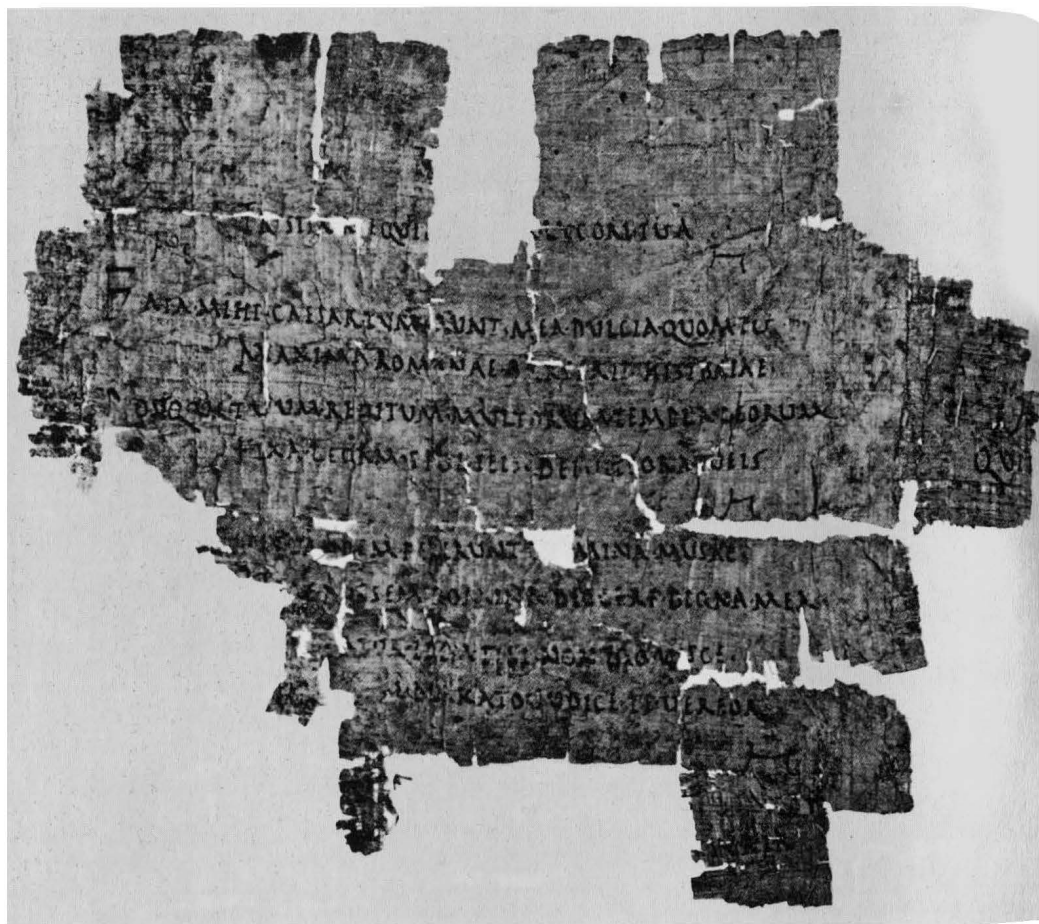 TRISTIA · NEQVIT A · LYCORI · TVA
FATA · MIHI · CAESAR · TVM · ERVNT · MEA · DVLCIA · QVOM · TV
MAXIMA · ROMANAE · PARS · ERIT · HISTORIAE
POSTQVE · TVVM · REDITVM · MVLTORVM · TEMPLA · DEORVM
FIXA · LEGAM · SPOLIEIS · DEIVITIORA · TVEIS
QVI
TANDEM · FECERVNT · CARMINA · MVSAE
POSSEM · DOMINA · DEICERE · DIGNA · MEA
TIBI · NON · EGO
KATO · IVDICE · TE · VEREOR